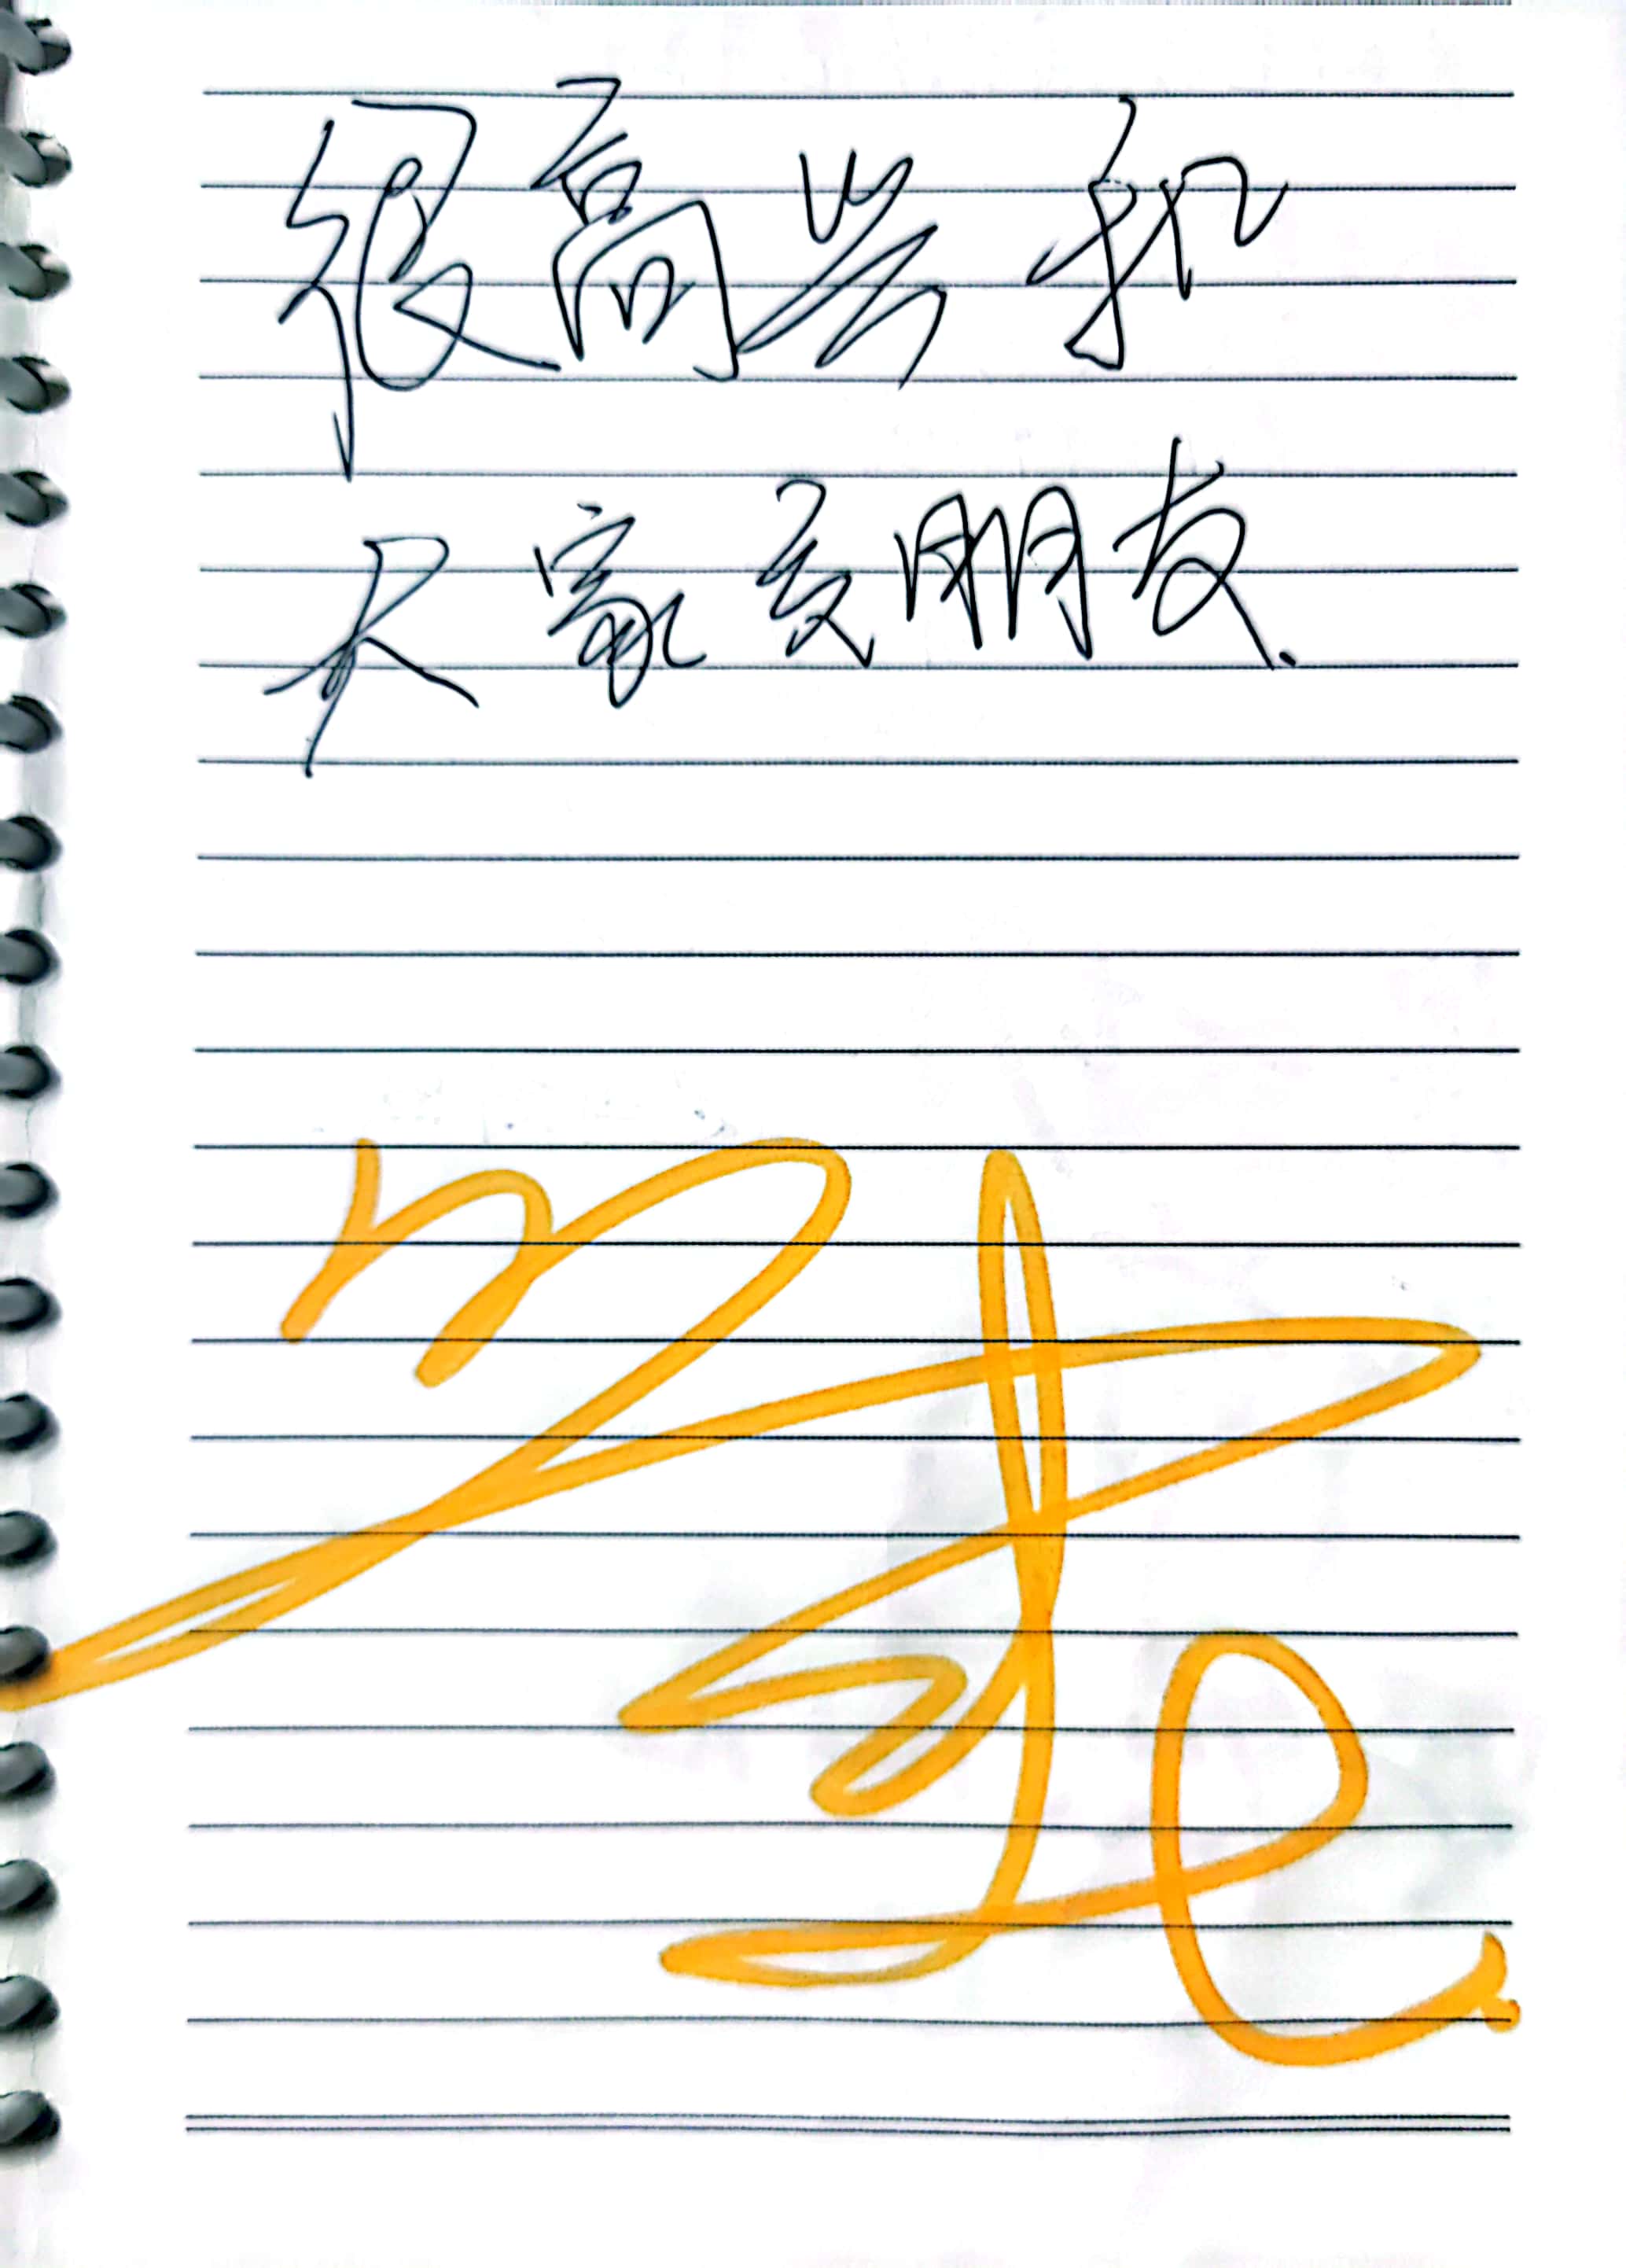 很高兴和
大家交朋友.